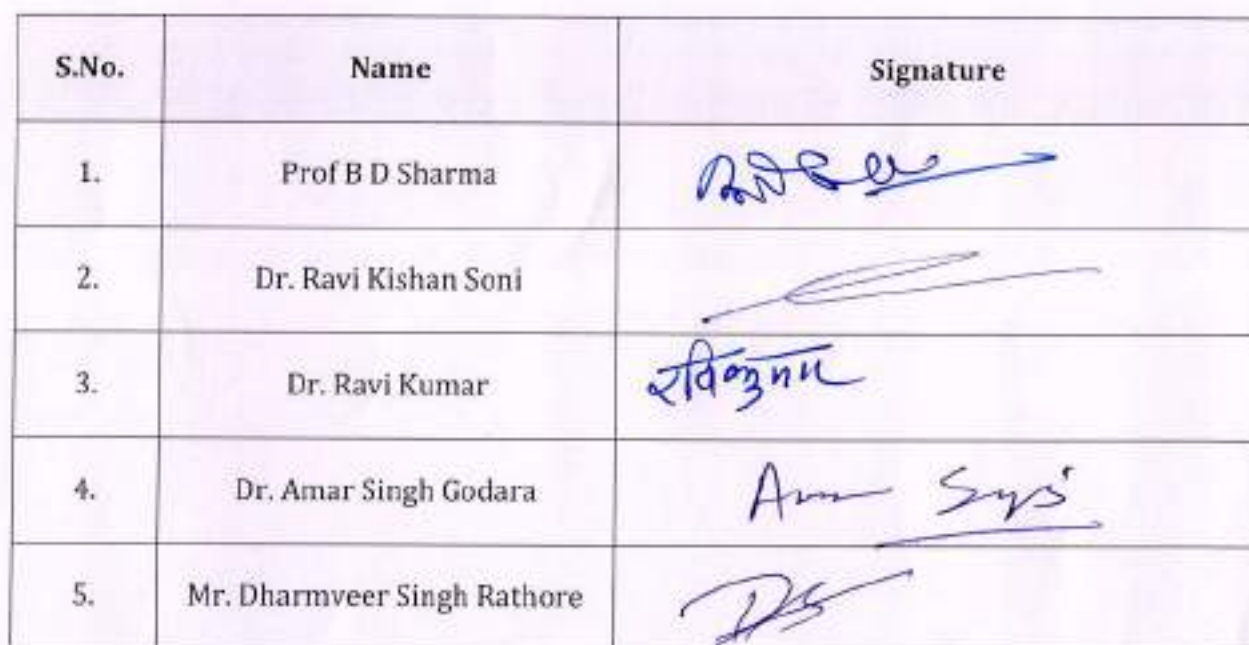 S.No. Name Signature
1. Prof B D Sharma
2. Dr. Ravi Kishan Soni
3. Dr. Ravi Kumar रविकुमार
4. Dr. Amar Singh Godara
5. Mr. Dharmveer Singh Rathore DS